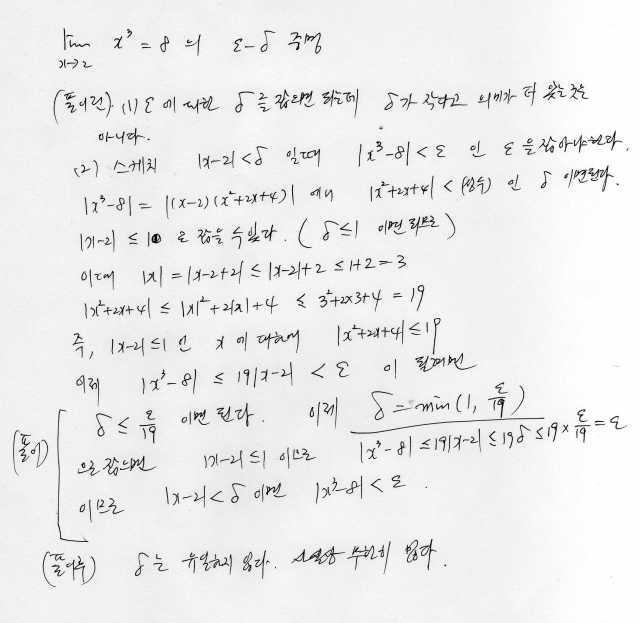 lim x³ = 8 의 ε-δ 증명
x→2
(풀이전) (1) ε에 따라 δ를 잡으면 되는데 δ가 작다고 의미가 더 있는 것은
아니다.
(2) 스케치 |x-2| < δ 일때 |x³-8| < ε 인 ε을 잡아야한다.
|x³-8| = |(x-2)(x²+2x+4)| 에서 |x²+2x+4| < (상수) 인 δ 이면된다.
|x-2| ≤ 1 로 잡을 수 있다. (δ≤1 이면 되므로)
이때 |x| = |x-2+2| ≤ |x-2|+2 ≤ 1+2 = 3
|x²+2x+4| ≤ |x|²+2|x|+4 ≤ 3²+2×3+4 = 19
즉, |x-2|≤1 인 x에 대하여 |x²+2x+4| ≤ 19
이제 |x³-8| ≤ 19|x-2| < ε 이 될려면
(풀이) δ ≤ ε/19 이면 된다. 이제 δ = min(1, ε/19)
으로 잡으면 |x-2|≤1 이므로 |x³-8| ≤ 19|x-2| ≤ 19δ ≤ 19 × ε/19 = ε
이므로 |x-2| < δ 이면 |x³-8| < ε.
(풀이후) δ는 유일하지 않다. 사실상 무한히 많다.